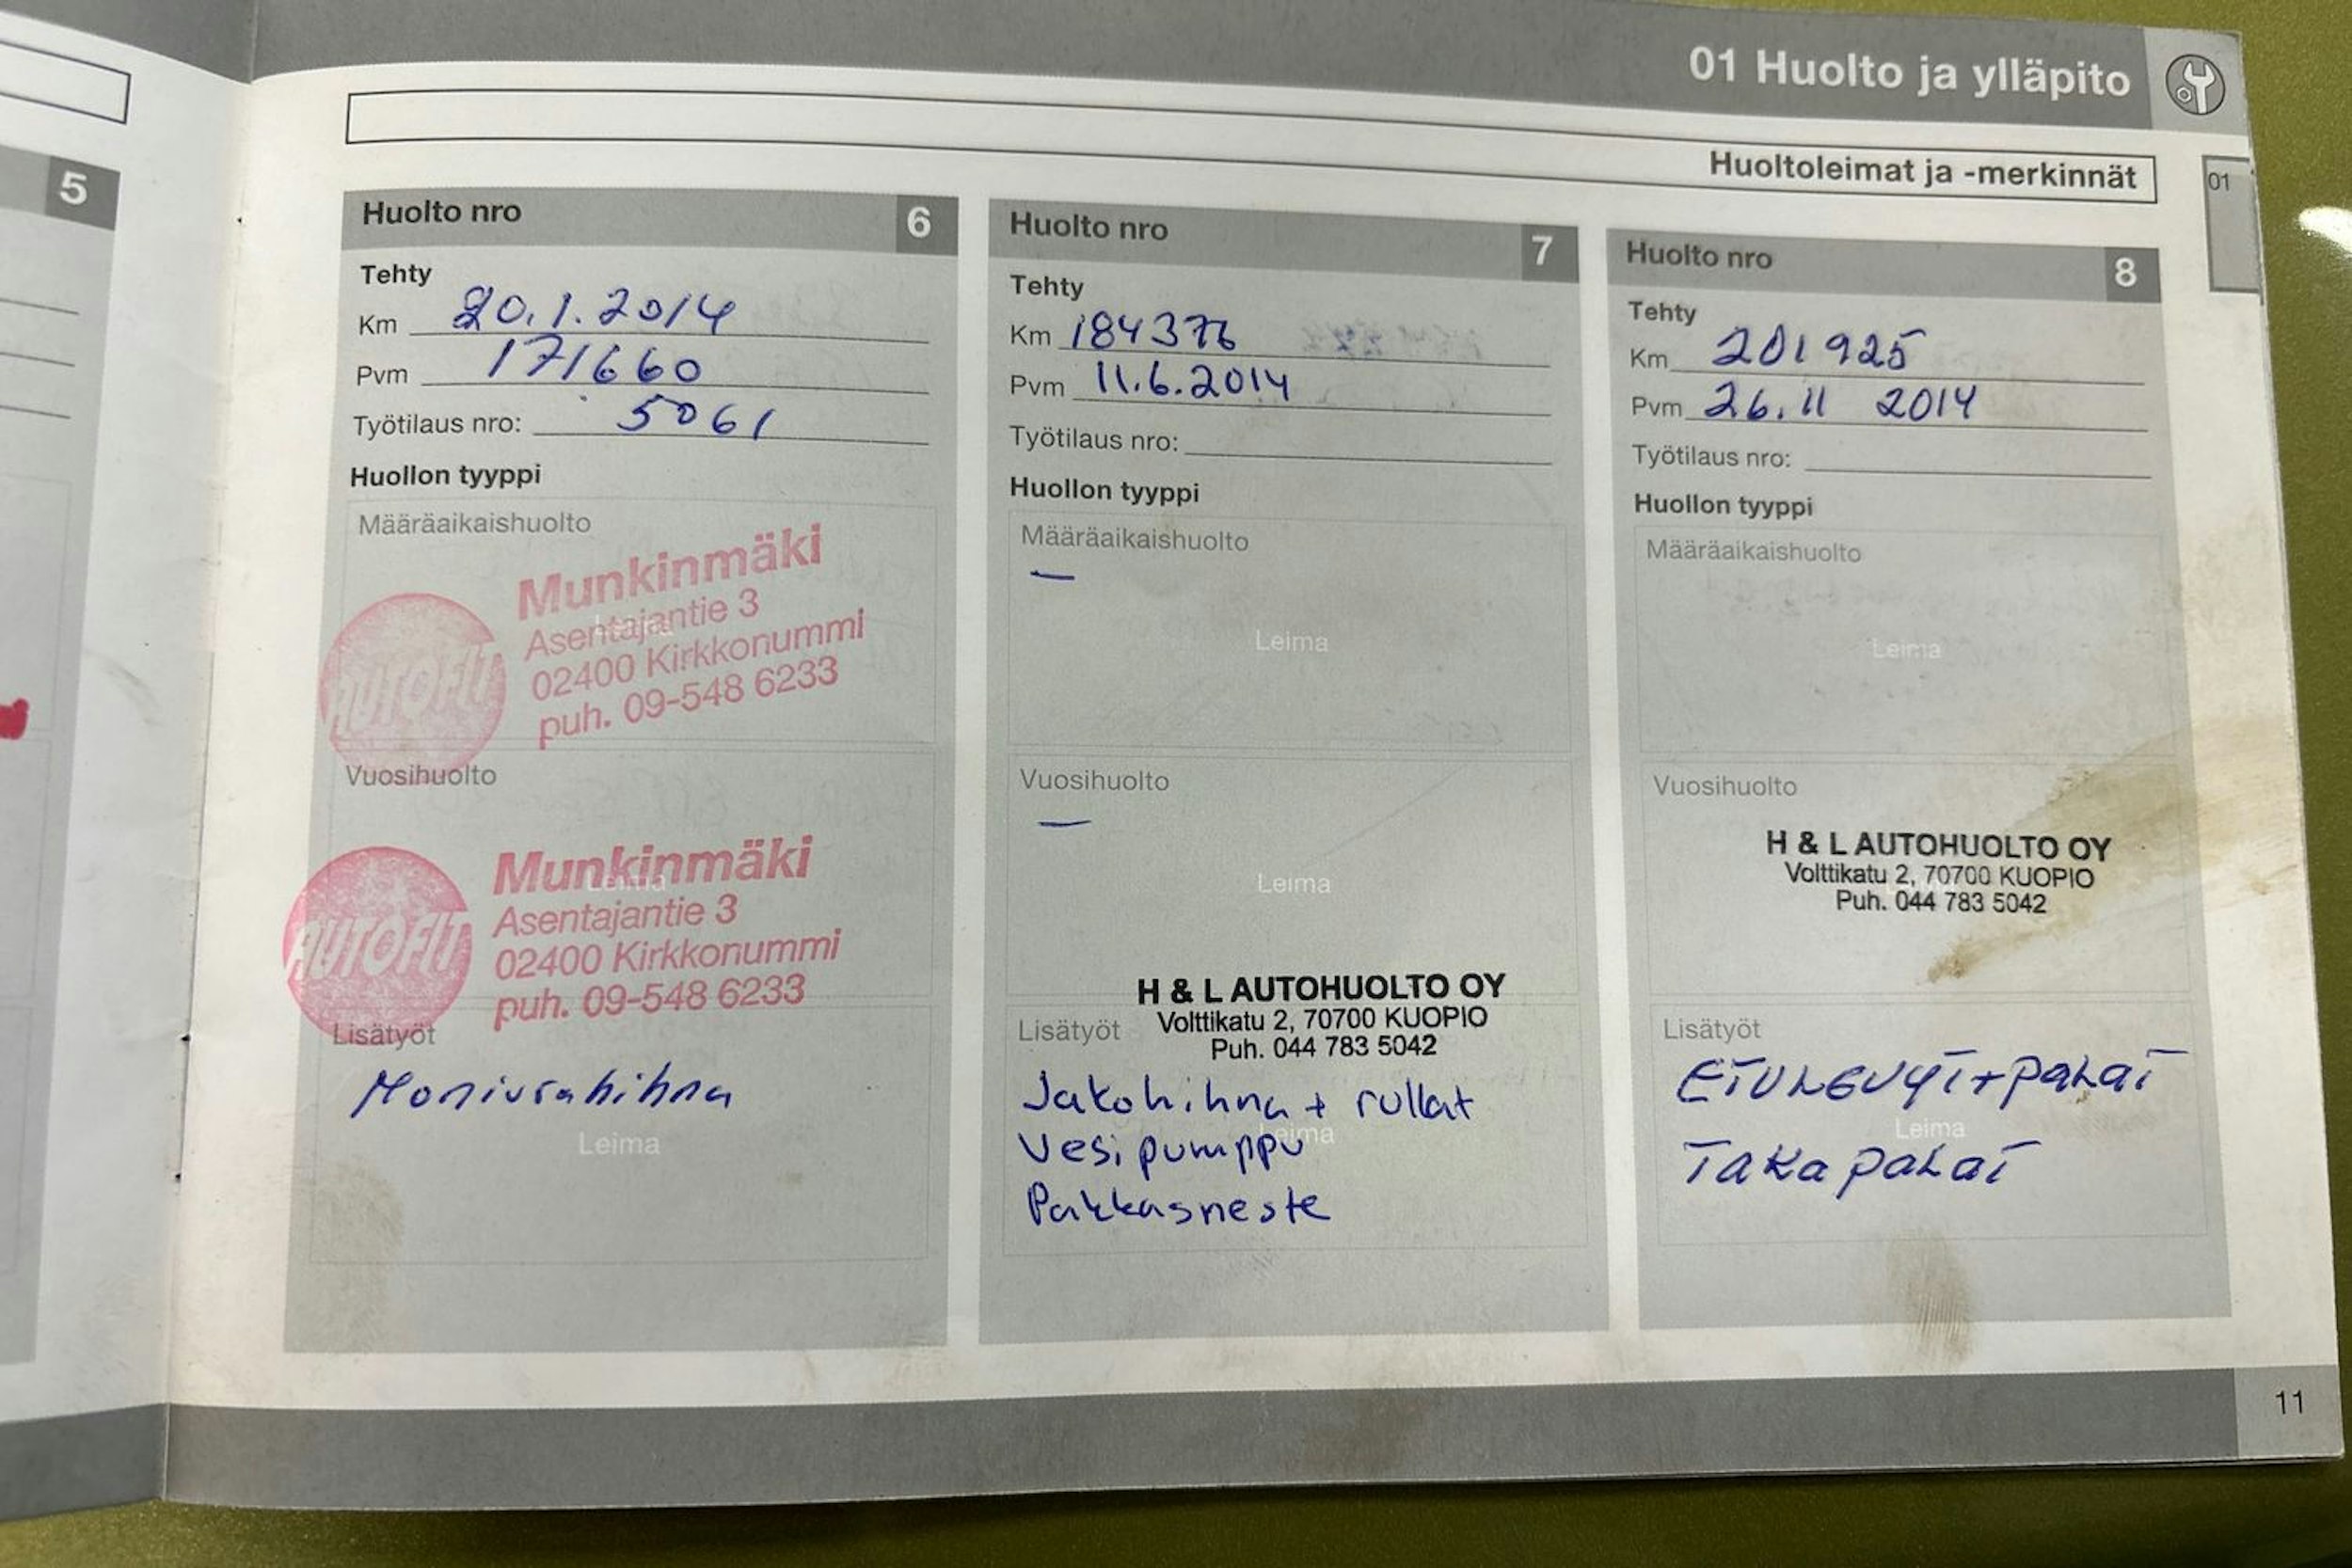 01 Huolto ja ylläpito
Huoltoleimat ja -merkinnät
01
5
Huolto nro 6
Tehty
Km 20.1.2014
Pvm 171660
Työtilaus nro: 5061
Huollon tyyppi
Määräaikaishuolto
Leima
AUTOFIT
Munkinmäki
Asentajantie 3
02400 Kirkkonummi
puh. 09-548 6233
Vuosihuolto
Leima
AUTOFIT
Munkinmäki
Asentajantie 3
02400 Kirkkonummi
puh. 09-548 6233
Lisätyöt
Moniurahihna
Leima
Huolto nro 7
Tehty
Km 184376
Pvm 11.6.2014
Työtilaus nro:
Huollon tyyppi
Määräaikaishuolto
—
Leima
Vuosihuolto
—
Leima
H & L AUTOHUOLTO OY
Volttikatu 2, 70700 KUOPIO
Puh. 044 783 5042
Lisätyöt
Jakohihna + rullat
Leima
Vesipumppu
Pakkasneste
Huolto nro 8
Tehty
Km 201925
Pvm 26.11 2014
Työtilaus nro:
Huollon tyyppi
Määräaikaishuolto
Leima
Vuosihuolto
H & L AUTOHUOLTO OY
Volttikatu 2, 70700 KUOPIO
Puh. 044 783 5042
Lisätyöt
ETULEVYT + PALAT
Leima
TAKA PALAT
11